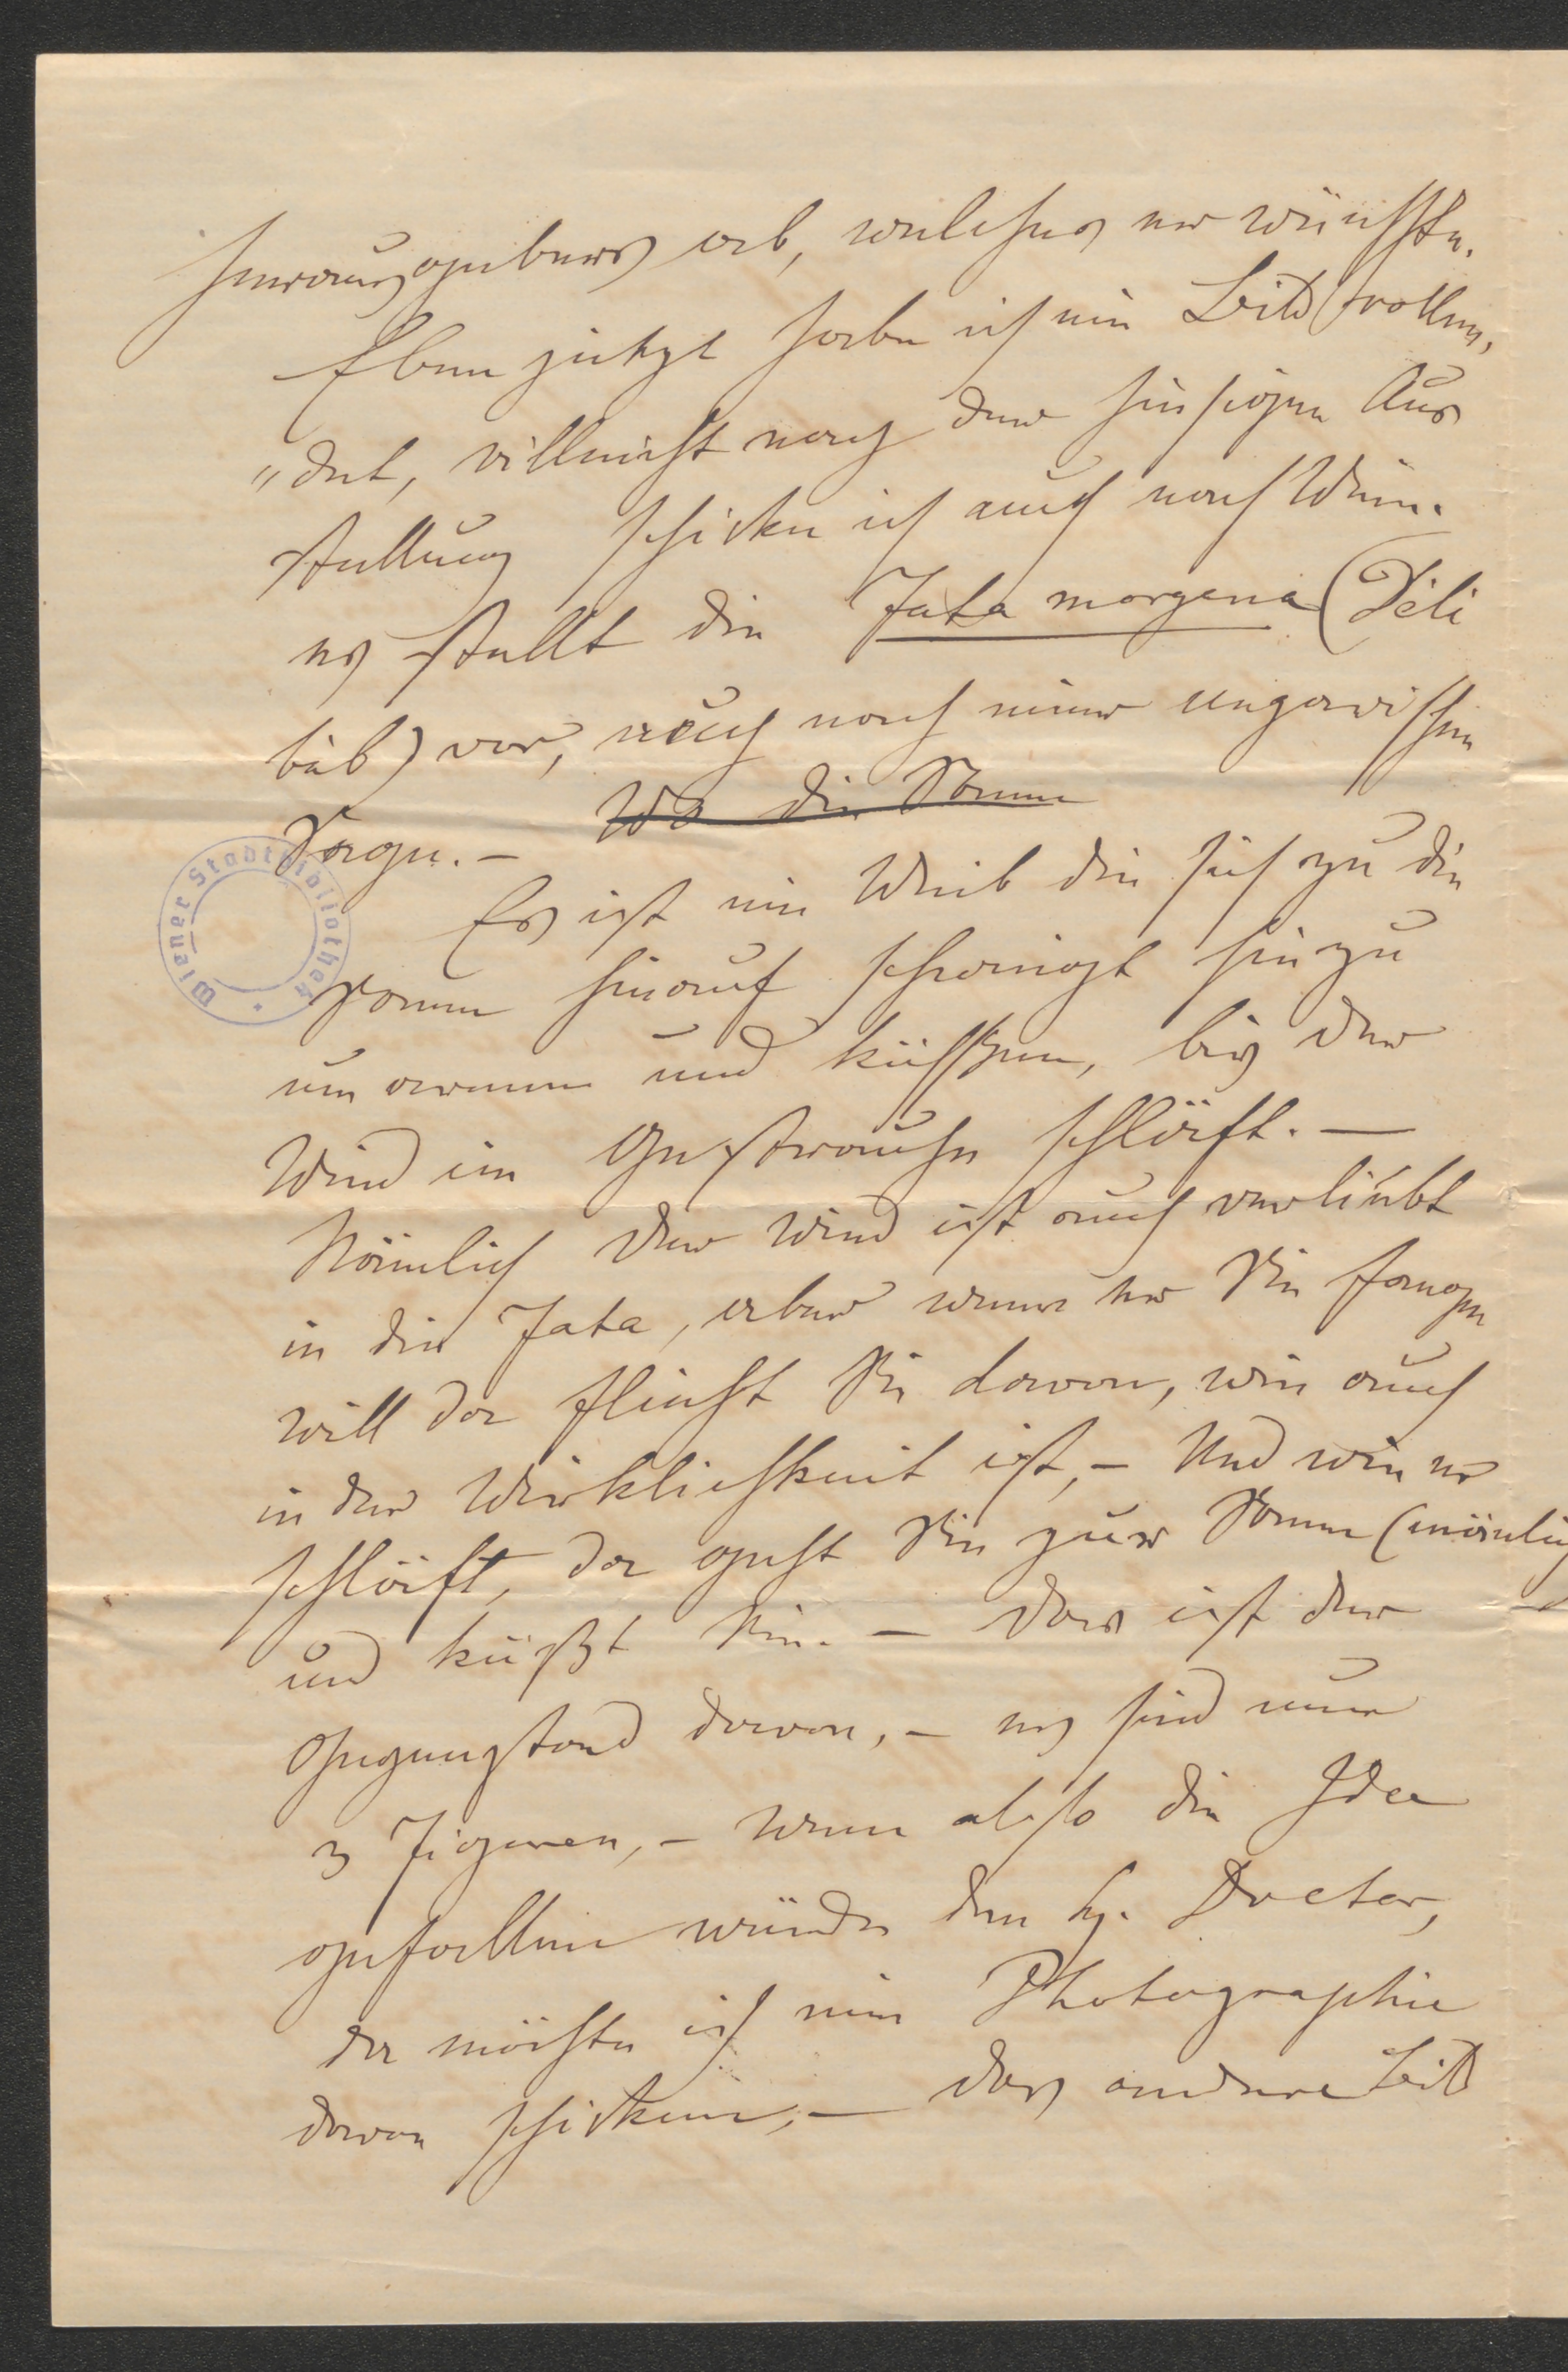 herausgebers ab, welches er wünschte.
Eben jetzt habe ich ein Bild vollen,
„det, villeicht nach der hiesigen Aus
stellung schicke ich auch nach Wien.
es stellt die Fata morgana (Déli
báb) vor, auch nach einer ungarischen
Sage. – Wo die Sonne
Es ist ein Weib die sich zu die
Sonne hinauf schwingt hinzu
um armen und küssen, bis der
Wind im Gesträuche schläft. —
Nämlich der Wind ist auch verliebt
in die Fata, aber wenn er Sie fangen
will da flieht Sie davon, wie auch
in der Wirklichkeit ist, – Und wie er
schläft, da geht Sie zur Sonne (nämlich
und küßt Sie. – Das ist der
Gegenstand davon, – es sind nur
3 Figuren, – wenn also die Idee
gefallen würde den H. Doctor,
da möchte ich eine Photographie
davon schicken, – das andere Bild
Wiener Stadtbibliothek